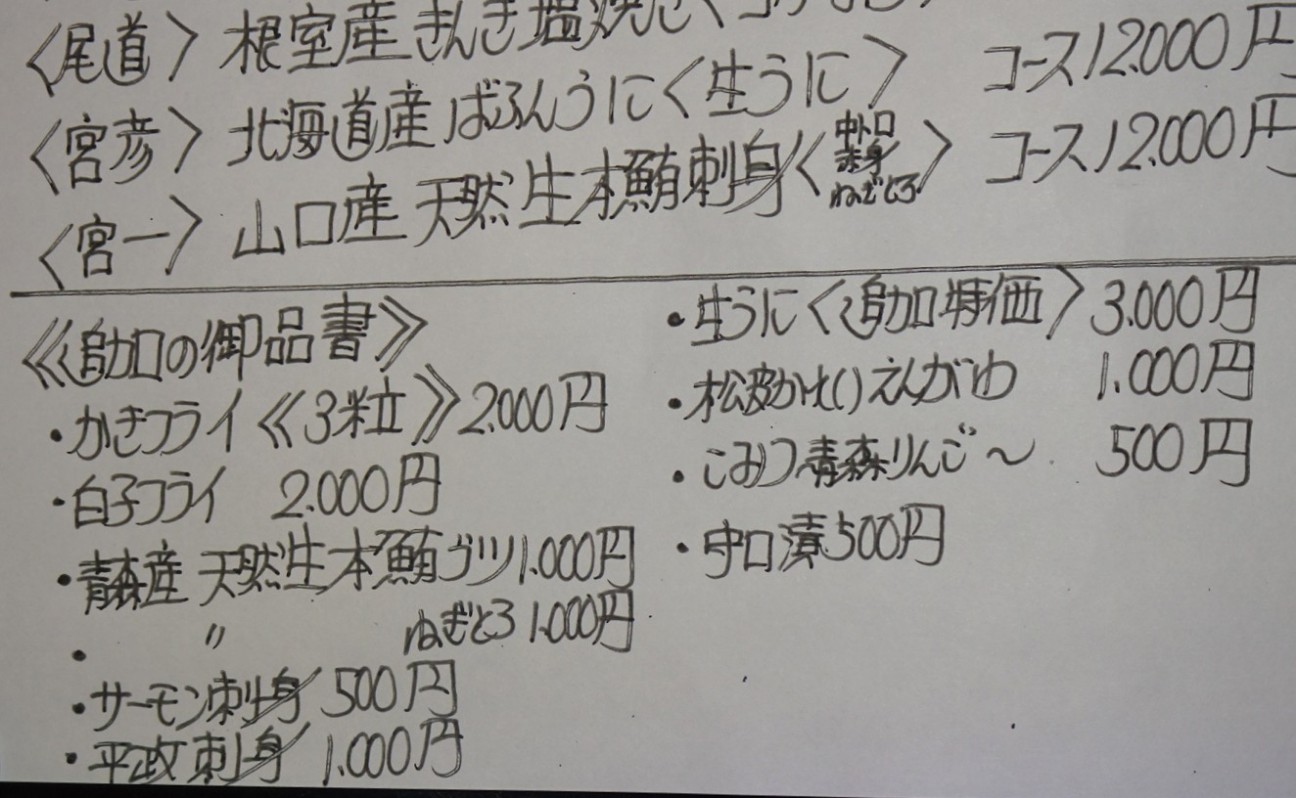 〈尾道〉 根室産きんき塩焼き〈
〈宮彦〉 北海道産ばふんうに〈生うに〉 コース12.000円
〈宮一〉 山口産天然生本鮪刺身〈中トロ 赤身 ねぎとろ〉 コース12.000円
《追加の御品書》
・かきフライ《3粒》2.000円
・白子フライ 2.000円
・青森産 天然生本鮪ブツ1.000円
・ 〃 ねぎとろ 1.000円
・サーモン刺身 500円
・平政刺身 1.000円
・生うに〈追加特価〉3.000円
・松皮かれいえんがわ 1.000円
・こみつ青森りんご〜 500円
・守口漬500円